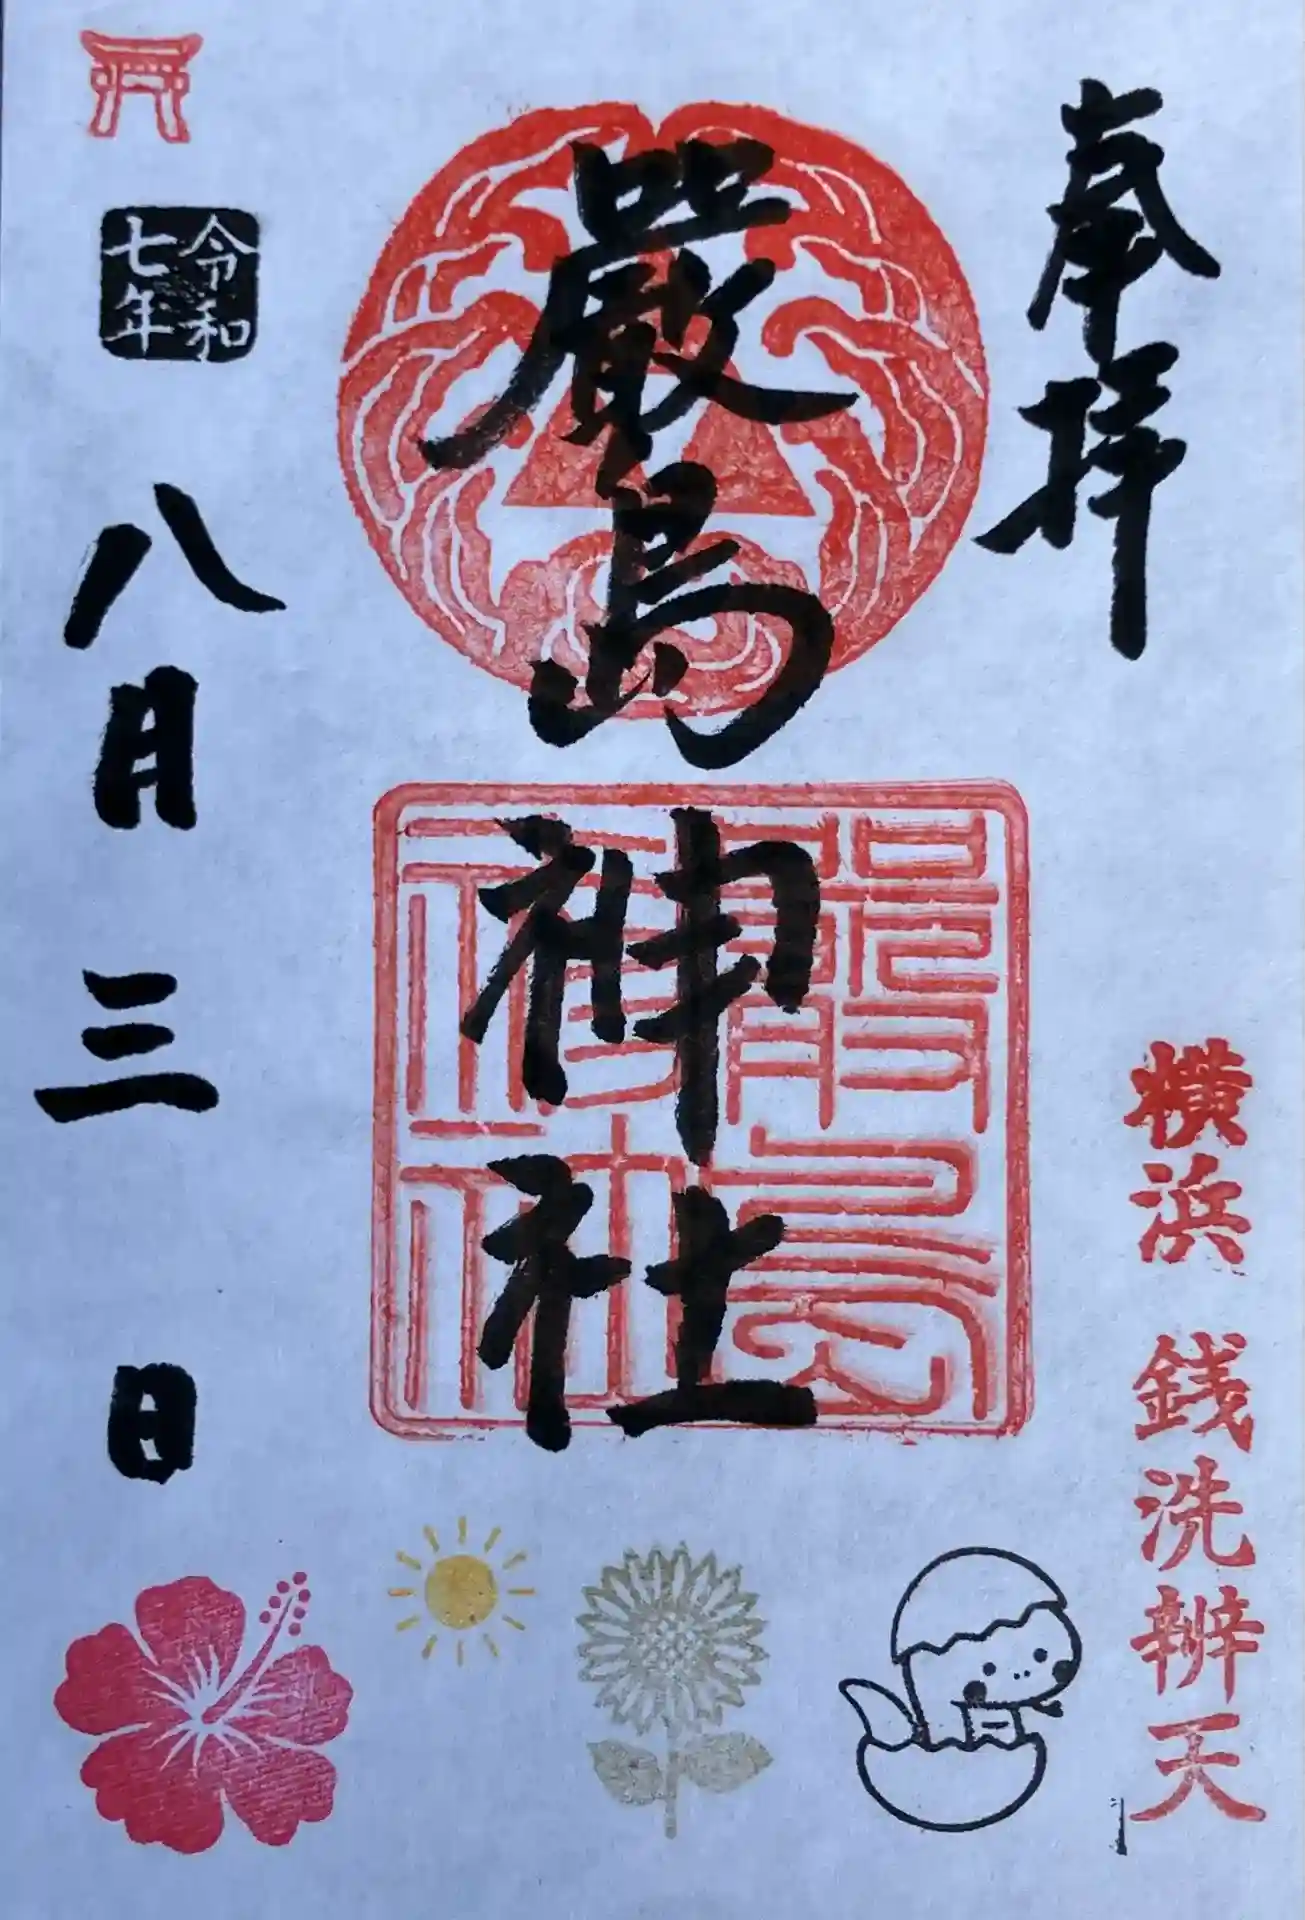 奉拝
横浜 銭洗辨天
嚴島神社
嚴島
神社
令和
七年
八月三日